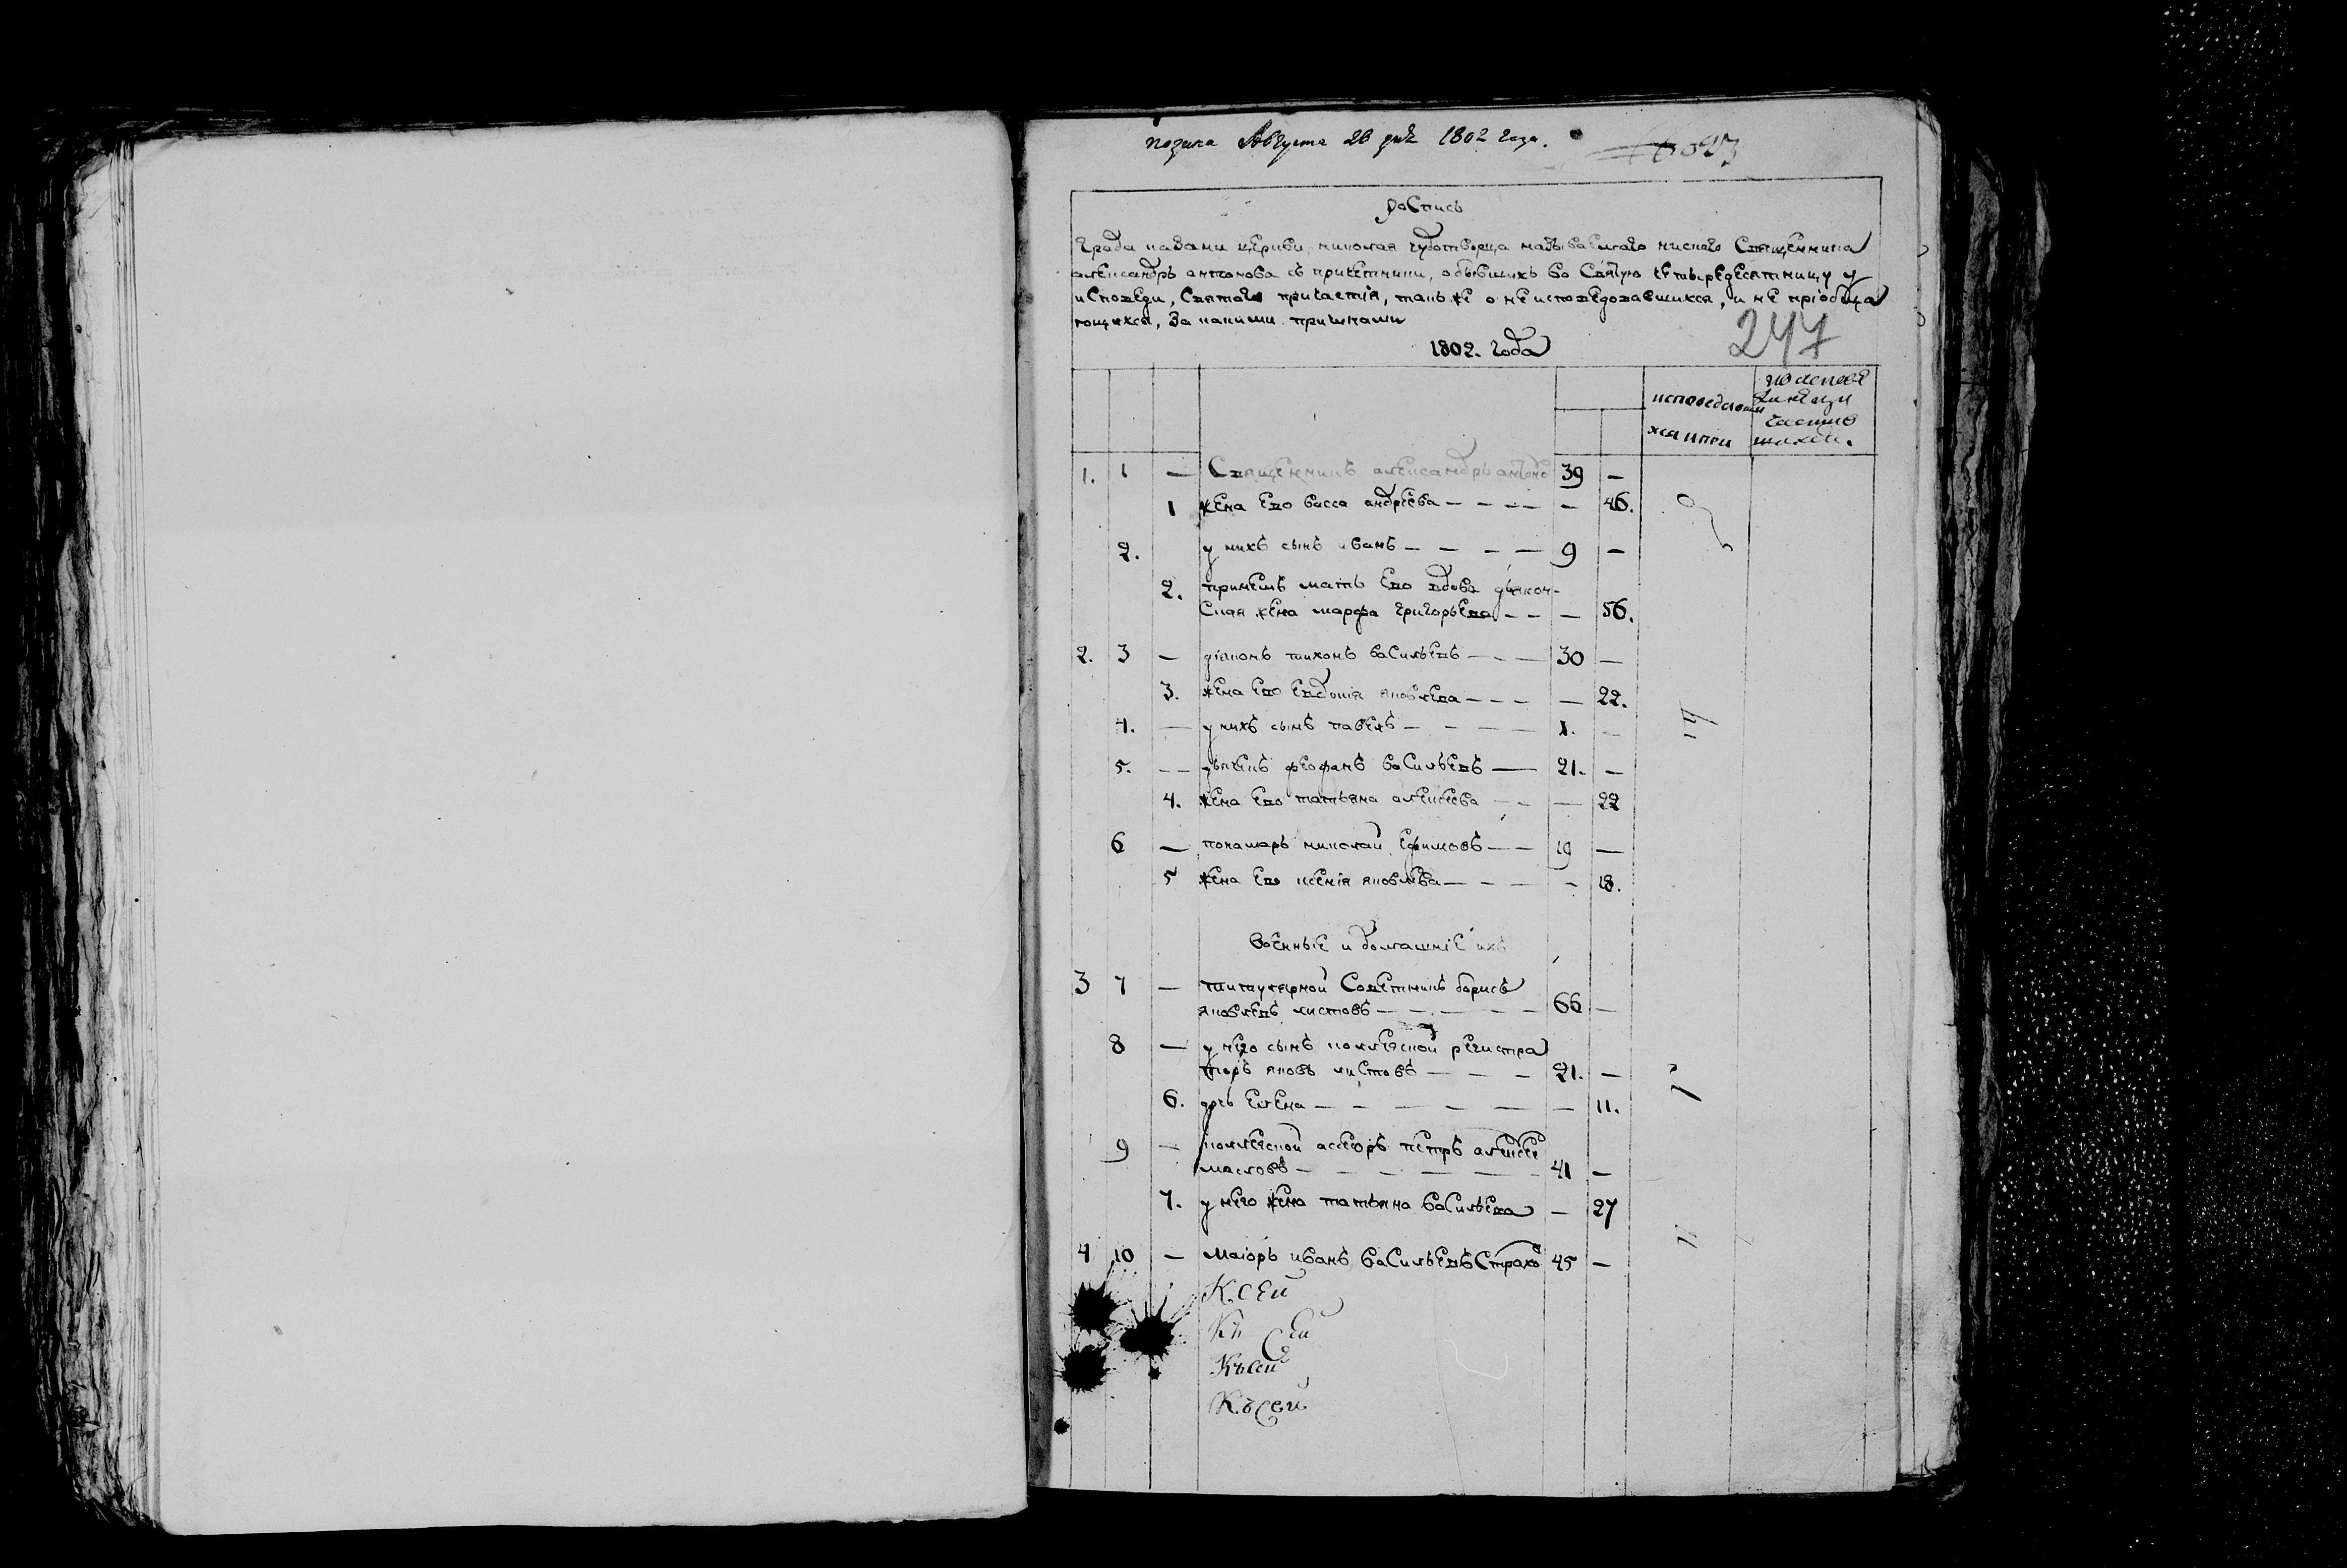 подана Августа 26 дня 1802 года.
роспись
града казани церкви николая чудотворца называемаго нискаго Священника
александръ антонова съ причетники, обывшихъ во Святую четыредесятницу у
исповеди, Святаго причастія, такъ же о неисповедовавшихся, и не пріобща
ющихся, За какими причинами
247
1802. года
исповедавши
хся и при
1. 1 — Священникъ александръ антоно 39 —
1 жена ево васса андрѣева — — — — — 46.
2. у нихъ сынъ иванъ — — — — 9 —
2. принемъ мать ево вдова дьякон-
Ская жена марфа григорьева — — — 56.
2. 3 — діаконъ тихонъ васильевъ — — — 30 —
3. жена ево евдокія яковлева — — — — 22.
4. — у нихъ сынъ павелъ — — — — 1. —
5. — — дьячекъ феофанъ васильевъ — 21. —
4. жена ево татьяна алексеева — — — 22
6 — понамарь николай ефимовъ — — 19 —
5 жена ево ксенія яковлева — — — — 18.
военные и домашніе ихъ
3 7 — титулярной Советникъ борисъ
яковлевъ листовъ — — — — — — 66 —
8 — у него сынъ коллежской регистра
торъ яковъ листовъ — — — 21. —
6. дочь елена — — — — — — — 11.
9 — коллежской ассесоръ петръ алексее
масловъ — — — — — — 41 —
7. у него жена татьяна васильева — 27
4 10 — маіоръ иванъ васильевъ Страхо 45 —
К сей
Къ Сей
Къ сей
Къ сей